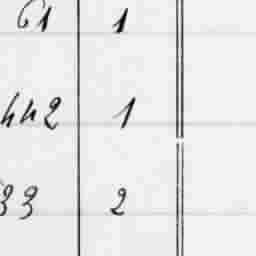 61 1
442 1
33 2